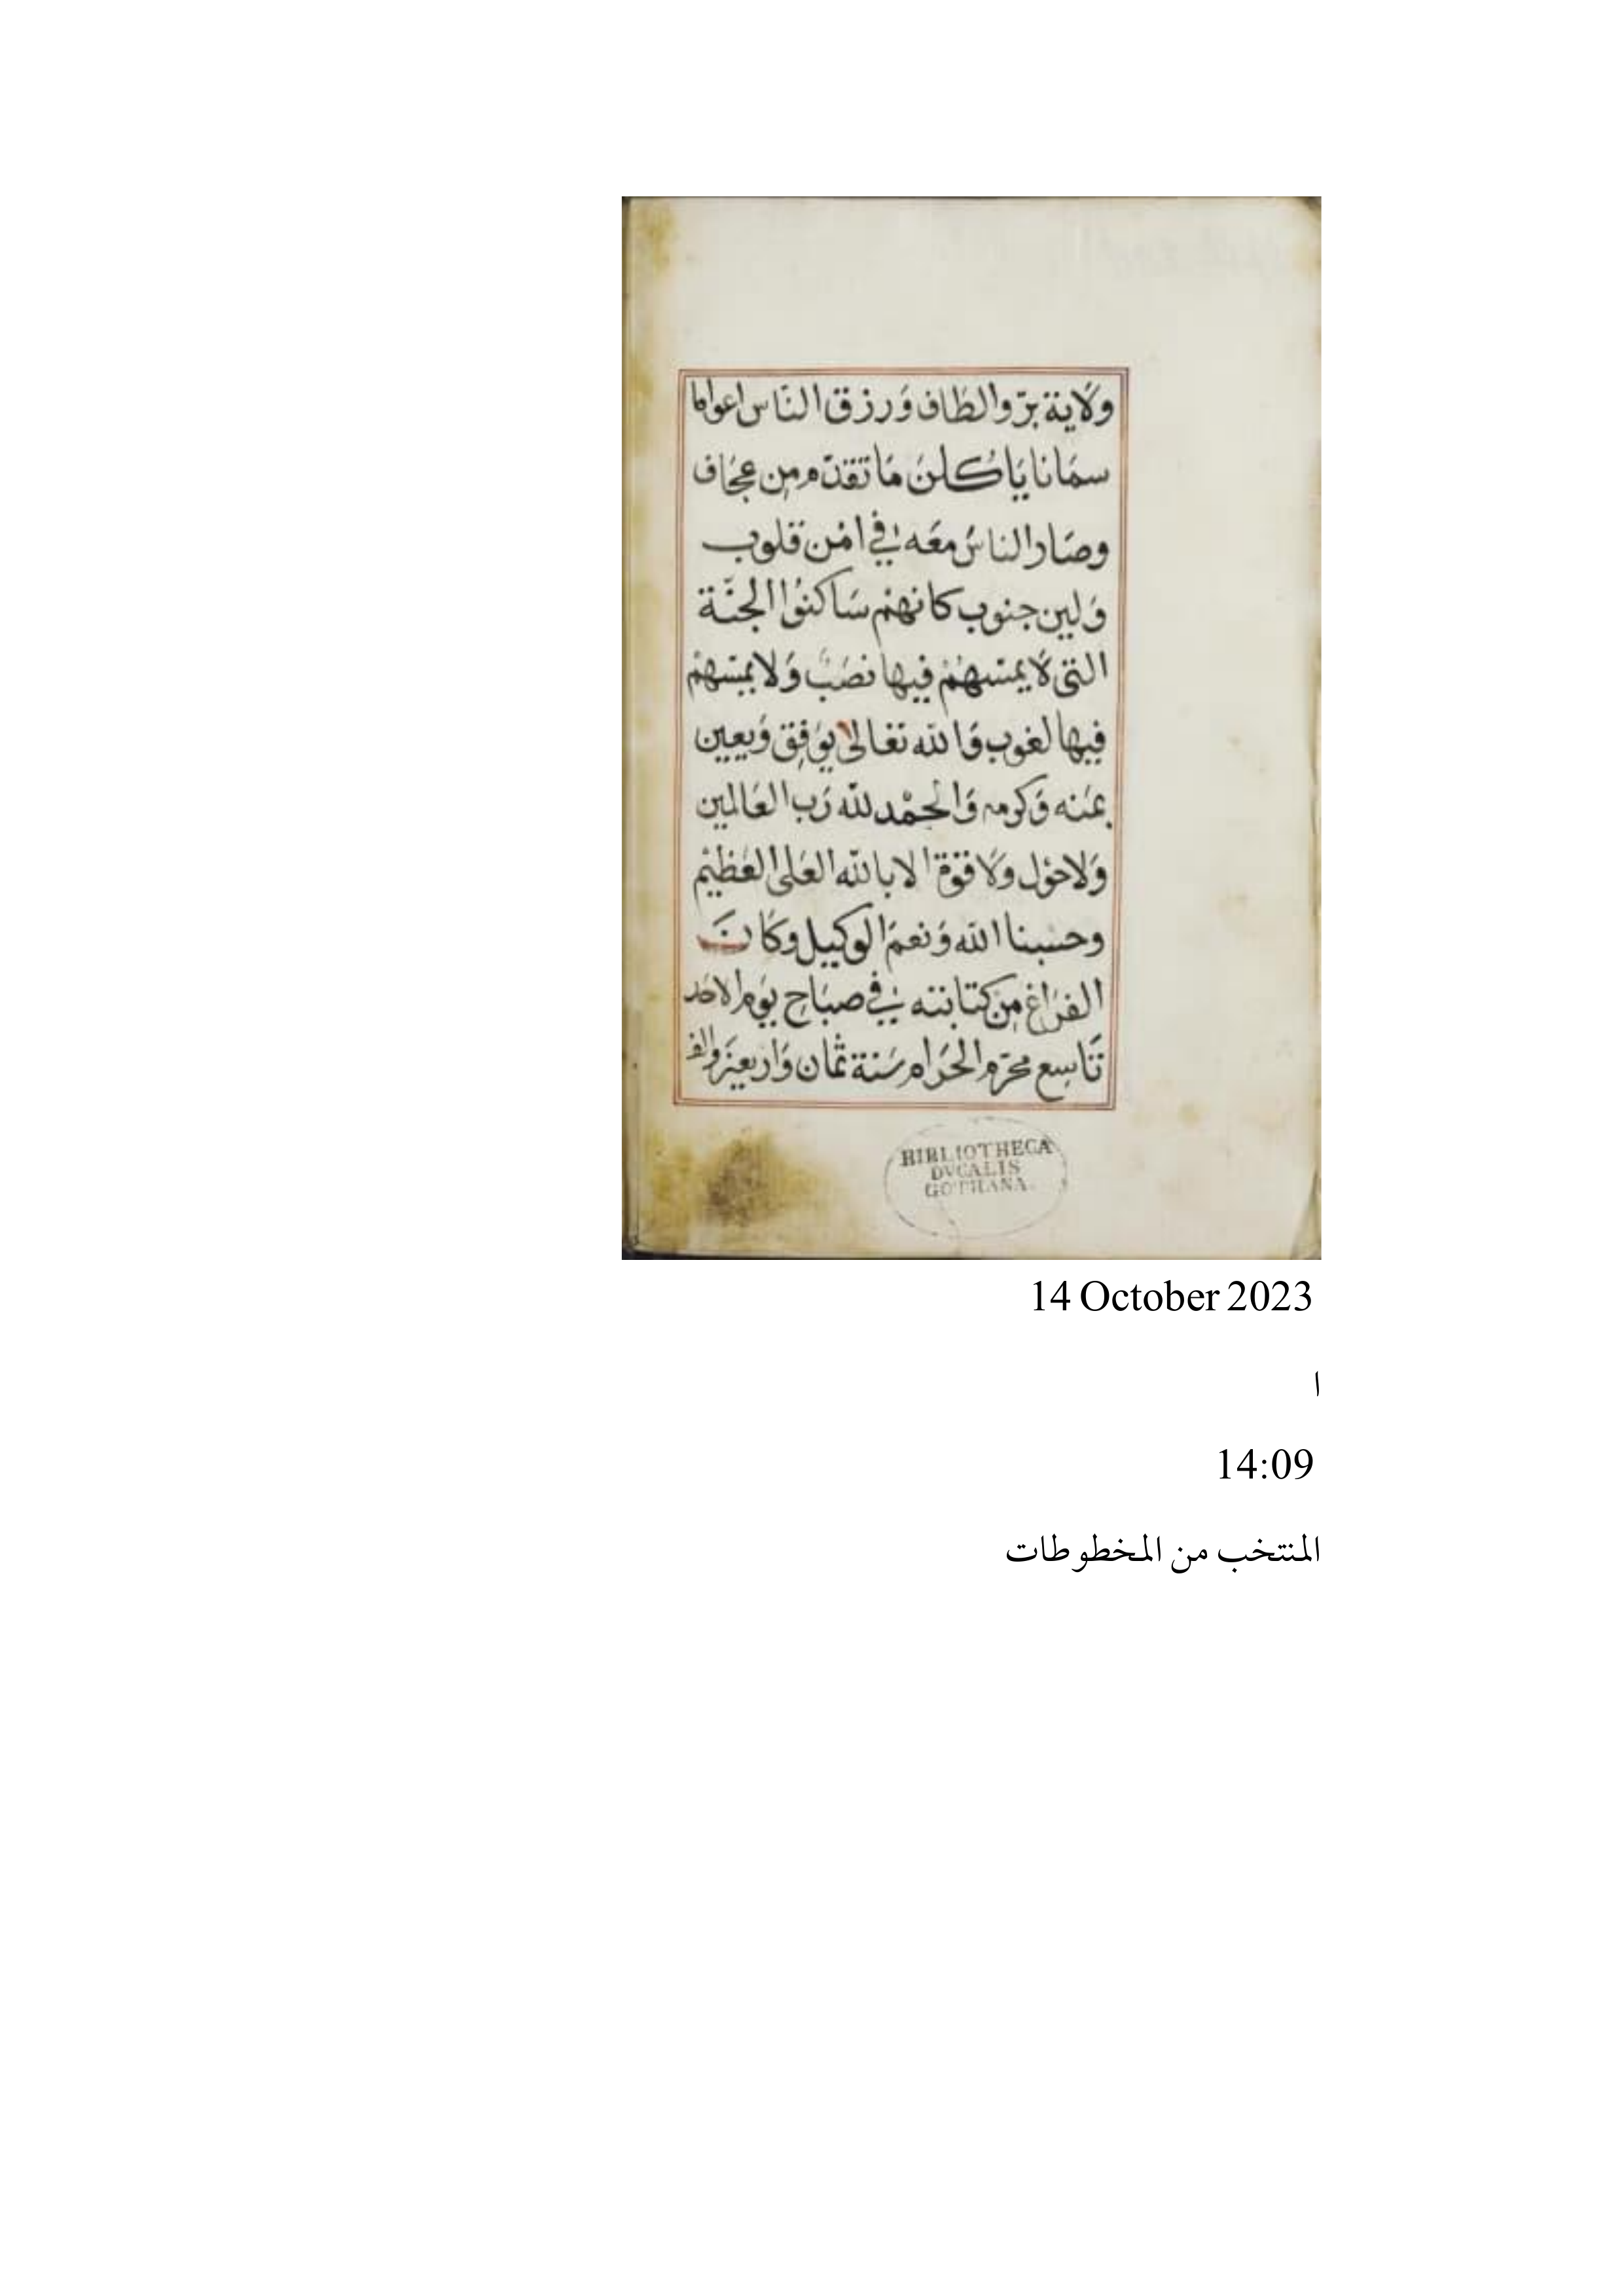 ولاية برّ والطاف وَرزق النّاس اعواما
سمَانا يَاكلنَ مَا تَقدّم من عجَاف
وصَار الناسُ معَه في امْن قلوب
وَلين جنوب كانهمْ سَاكنوُا الجنّة
التى لَا يمسّهمْ فيها نصَبٌ وَلا يمسّهمْ
فيها لغوب وَالله تعَالى يوَفق وَيعين
بمَنه وَكرمه وَالحمْد للّه رَب العَالمين
وَلا حوْل وَلا قوّة الا باللّه العَلى العَظيْم
وحسْبنا اللّه وَنعمَ الوكيل وكَانَ
الفرَاغ من كتابته في صبَاح يوَم الاحَد
تَاسع محرّم الحرَام سَنة ثمان وَاربعين والف
BIBLIOTHECA
DVCALIS
GOTHANA.
14 October 2023
ا
14:09
المنتخب من المخطوطات